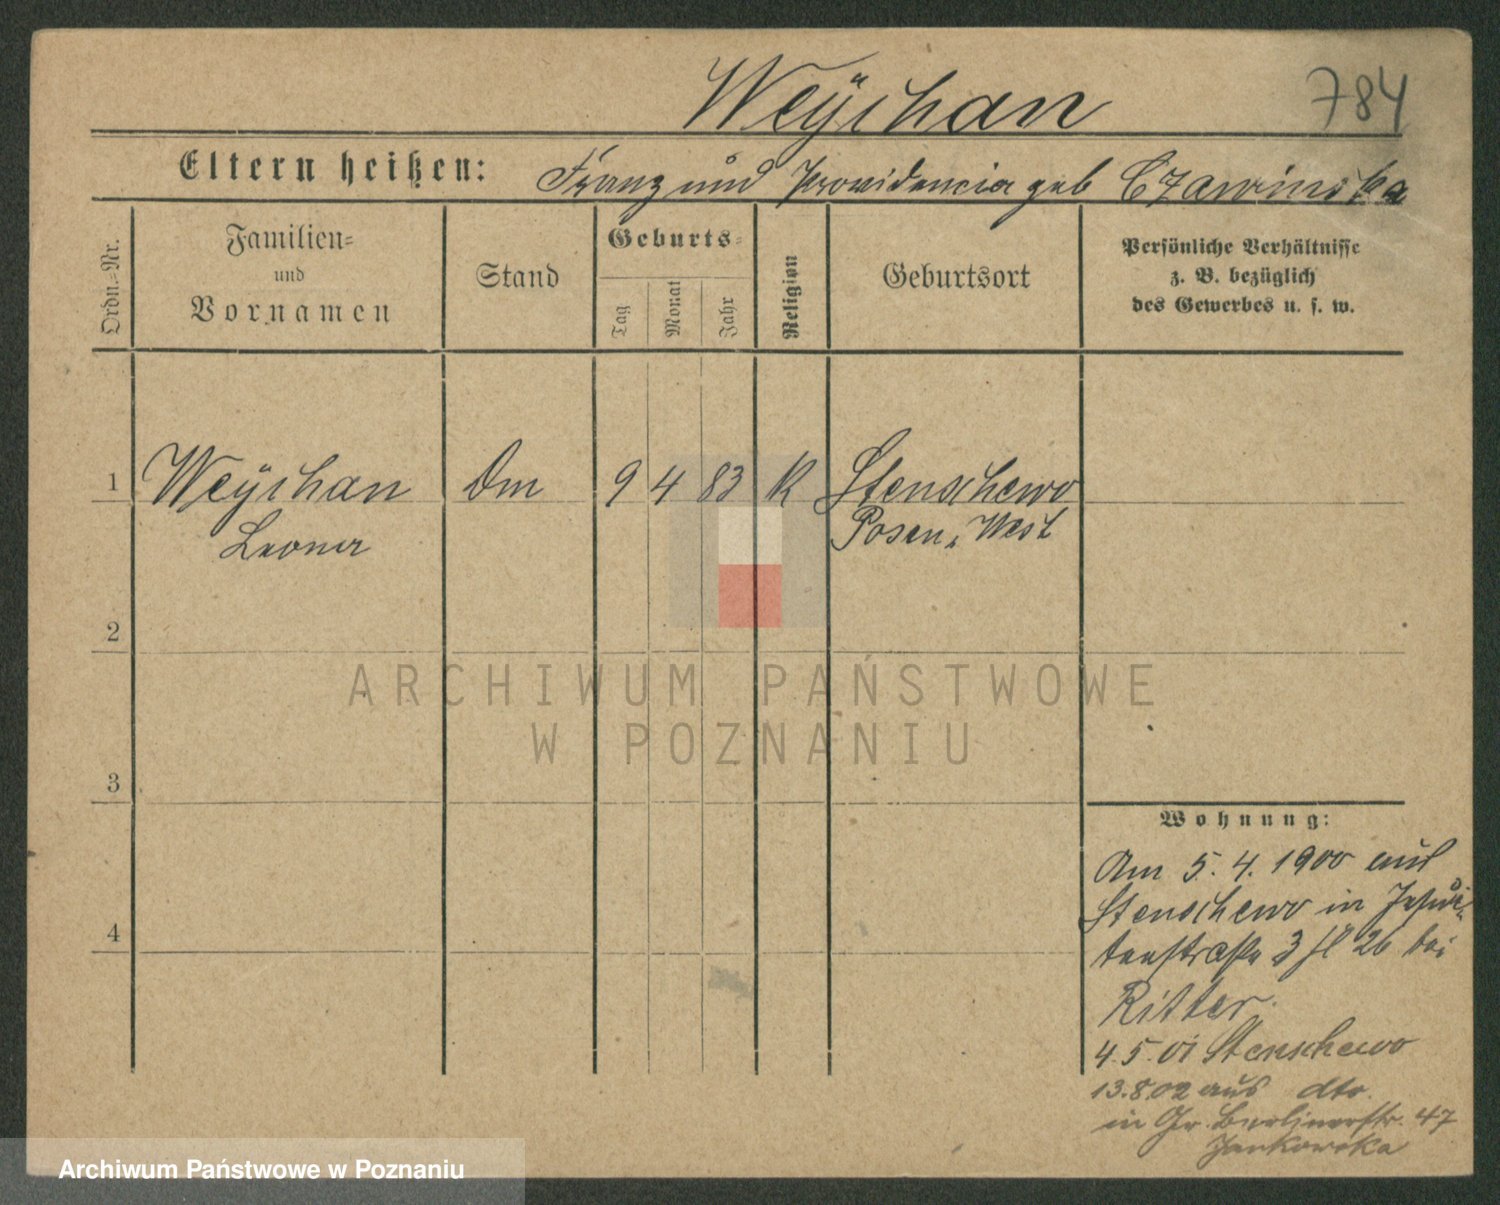 Weÿchan 784
Eltern heißen: Franz und Providencia geb Czawinska
Ordn.=Nr.
Familien=
und
Vornamen
Stand
Geburts=
Tag
Monat
Jahr
Religion
Geburtsort
Persönliche Verhältnisse
z. B. bezüglich
des Gewerbes u. s. w.
1 Weÿchan 9 4 83 K Stenschewo
Leona Posen, West
2
ARCHIWUM PAŃSTWOWE
W POZNANIU
3
Wohnung:
Am 5. 4. 1900 aus
Stenschewo in Jesui-
tenstraße 3 26 bei
Ritter.
4. 5. 01 Stenschewo
4
13.8.02 aus dto.
in Gr. Berlinerstr. 47
Jankowska
Archiwum Państwowe w Poznaniu